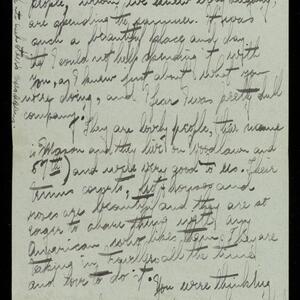 people, whom we knew very slightly,
are spending the summer. It was
such a beautiful place and day
that I could not help spending it with
you, as I knew just about what you
were doing, and I fear I was pretty dull
company.
They are lovely people, the name
is Mason and they live on Woodlawn and
57th, and were very good to us. Their
tennis courts, horses and
roses are beauties and they are so
eager to share them with any
American who likes them. They are
taking in travellers all the time
and love to do it.
You were thinking